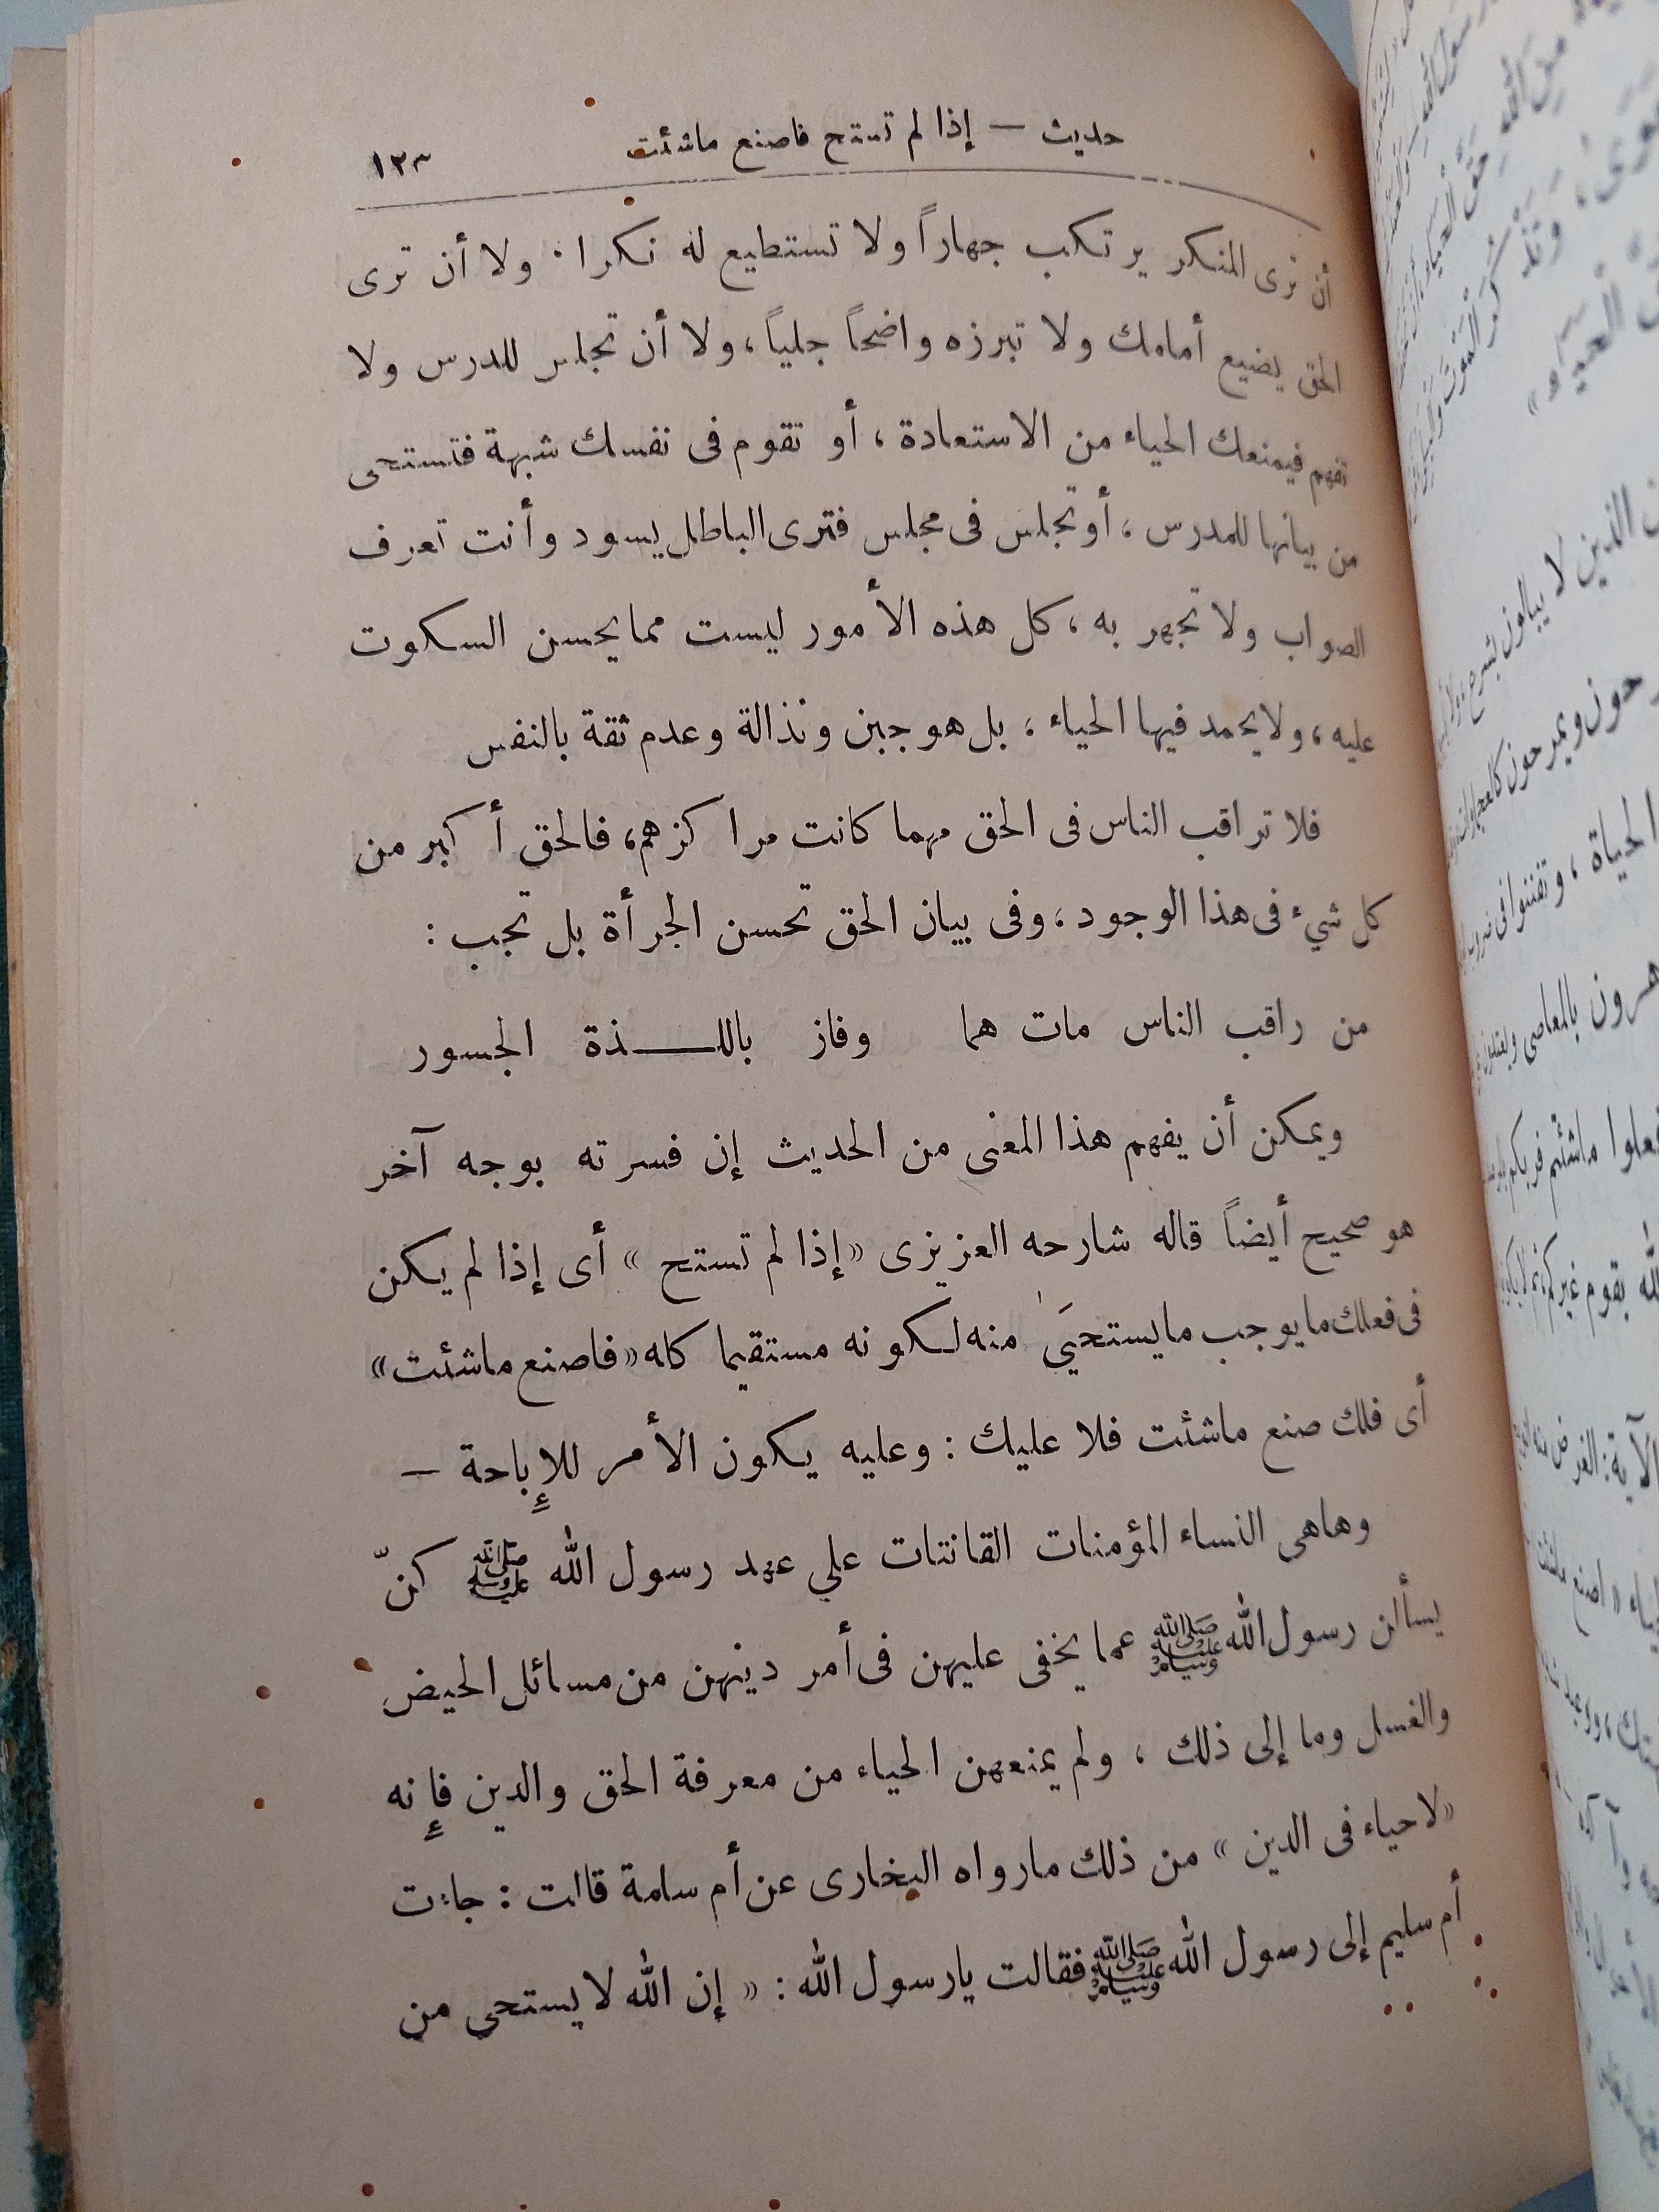 حديث — إذا لم تستح فاصنع ماشئت
١٢٣
أن ترى المنكر يرتكب جهاراً ولا تستطيع له نكرا، ولا أن ترى
الحق يضيع أمامك ولا تبرزه واضحاً جلياً، ولا أن تجلس للدرس ولا
تفهم فيمنعك الحياء من الاستعادة، أو تقوم فى نفسك شبهة فتستحى
من بيانها للمدرس، أو تجلس فى مجلس فترى الباطل يسود وأنت تعرف
الصواب ولا تجهر به، كل هذه الأمور ليست مما يحسن السكوت
عليه، ولا يحمد فيها الحياء، بل هو جبن ونذالة وعدم ثقة بالنفس
فلا تراقب الناس فى الحق مهما كانت مراكزهم، فالحق أكبر من
كل شيء فى هذا الوجود، وفى بيان الحق تحسن الجرأة بل تجب:
من راقب الناس مات هما وفاز باللـــذة الجسور
ويمكن أن يفهم هذا المعنى من الحديث إن فسرته بوجه آخر
هو صحيح أيضاً قاله شارحه العزيزى «إذا لم تستح» أى إذا لم يكن
فى فعلك ما يوجب ما يستحيَى منه لكونه مستقيما كله «فاصنع ماشئت»
أى فلك صنع ماشئت فلا عليك: وعليه يكون الأمر للإباحة —
وهاهى النساء المؤمنات القانتات علي عهد رسول الله ﷺ كنّ
يسألن رسول الله ﷺ عما يخفى عليهن فى أمر دينهن من مسائل الحيض
والغسل وما إلى ذلك، ولم يمنعهن الحياء من معرفة الحق والدين فإنه
«لا حياء فى الدين» من ذلك مارواه البخارى عن أم سلمة قالت: جاءت
أم سليم إلى رسول الله ﷺ فقالت يارسول الله: «إن الله لا يستحى من